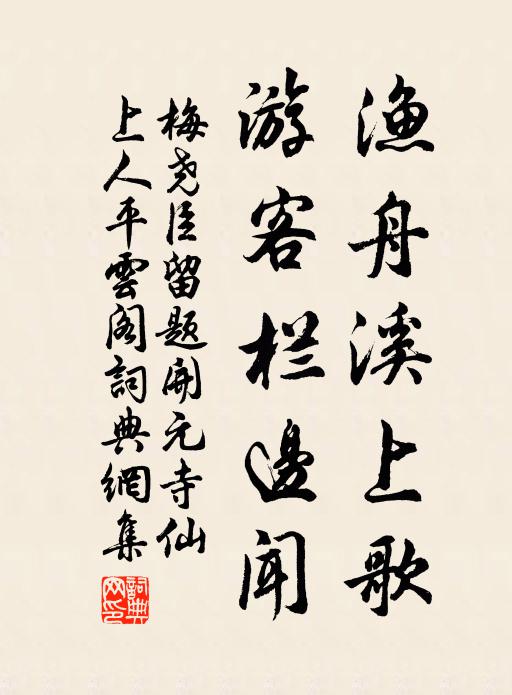 渔舟溪上歌
游客栏邊闻
梅尧臣留题开元寺仙
上人平雲阁詞典網集
詞典
网印